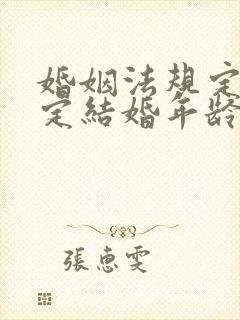 婚姻法規定
定結婚年齡
張惠雯